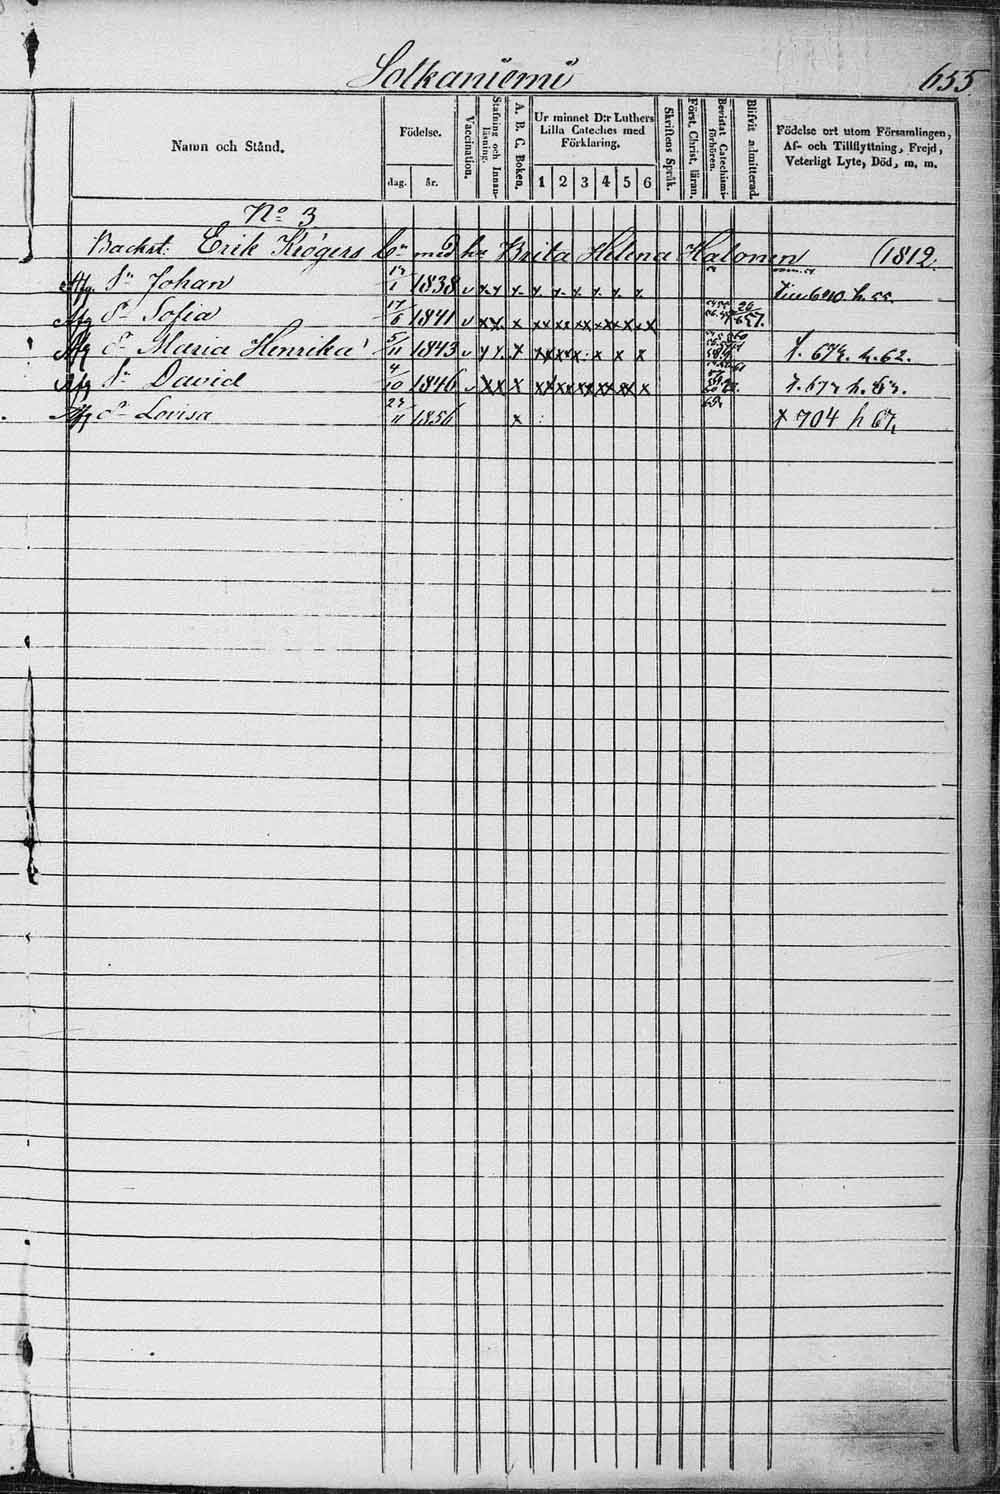 Solkaniemi
655.
Namn och Stånd.
Födelse.
dag.
år.
Vaccination.
Stafning och Innanläsning.
A. B. C. Boken.
Ur minnet D:r Luthers Lilla Cateches med Förklaring.
1 2 3 4 5 6
Skriftens Språk.
Först. Christ. läran.
Bevistat Catechismiförhören.
Blifvit admitterad.
Födelse ort utom Församlingen, Af- och Tillflyttning, Frejd, Veterligt Lyte, Död, m. m.
No 3
Backst: Erik Krögers bn med hu Brita Helena Halonen (1812.
Afg. Sn Johan 1838 v x x x x x x x x x 640 h. 55.
Afg Dr Sofia 17/6 1841 v x x x x x x x x x x 26 657.
Afg Dr Maria Henrika 5/11 1843 v x x x x x x : x x x h. 62.
Afg Sn David 4/10 1846 v x x x x x x x x x h.
Afg Dr Lovisa 23/11 1856 x : x 704 h 67